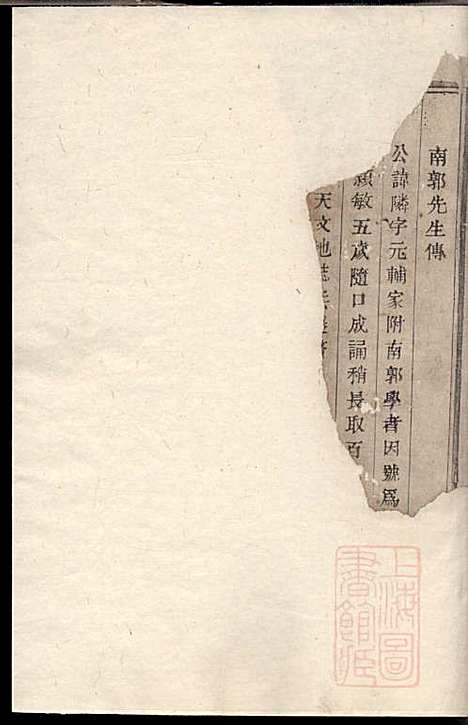 南郭先生傳
公諱隣字元輔家附南郭學者因號爲
穎敏五歲隨口成誦稍長取百
天文地誌
上海圖
書館藏